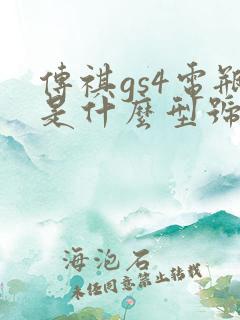 傳祺gs4電瓶
是什麼型號
海泡石
未任同意禁止转载